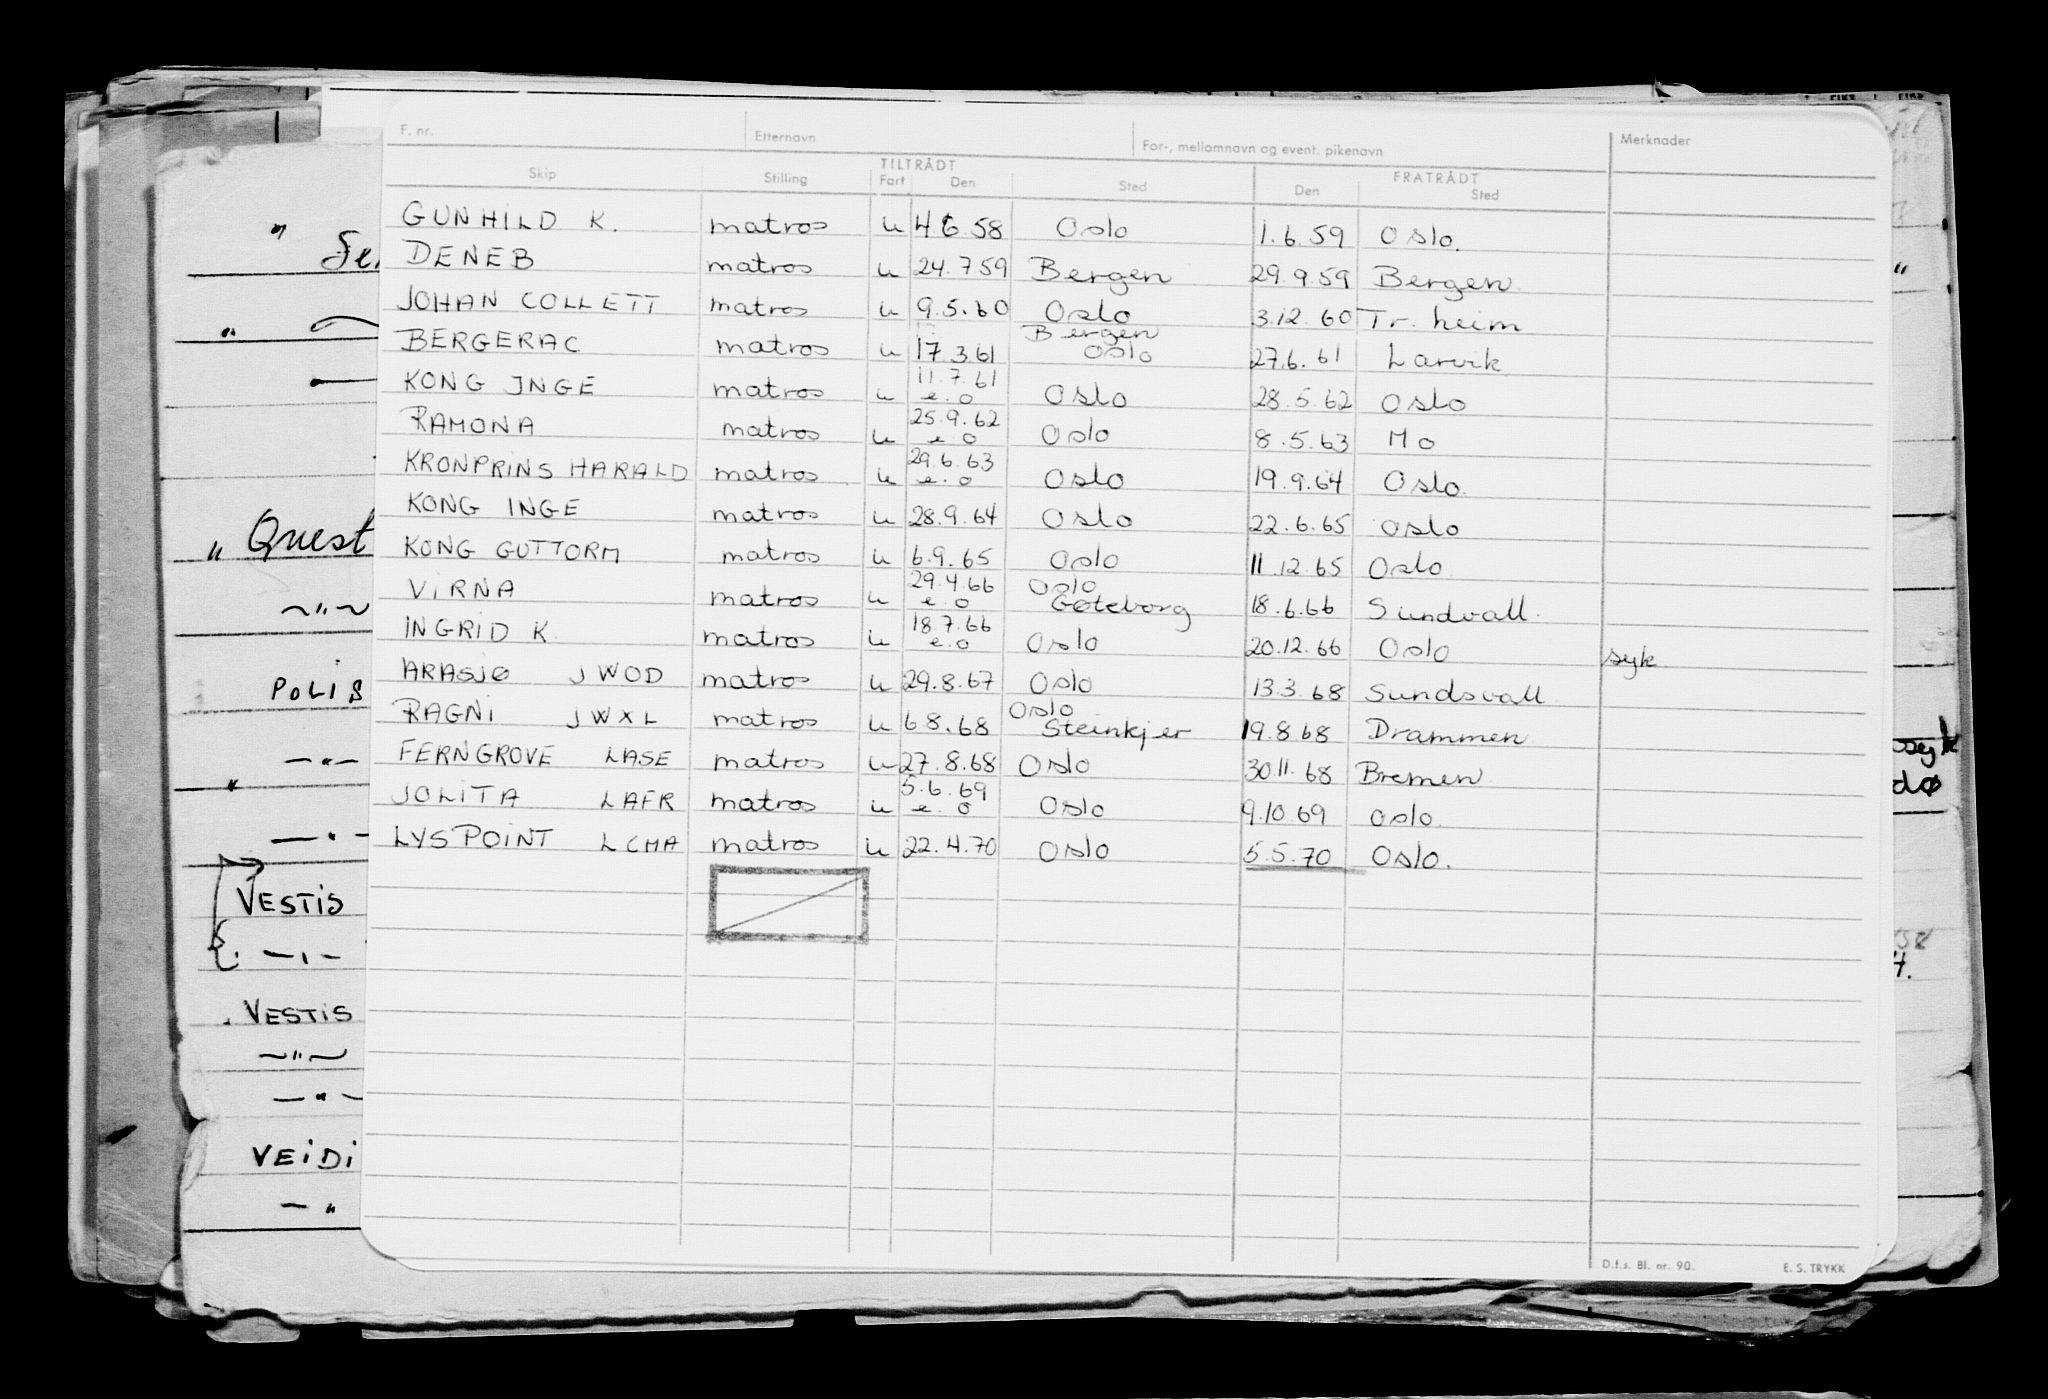 F. nr. Etternavn For-, mellomnavn og event. pikenavn Merknader
TILTRÅDT FRATRÅDT
Skip Stilling Fart Den Sted Den Sted
GUNHILD K. matros u 4.6.58 Oslo 1.6.59 Oslo.
DENEB matros u 24.7.59 Bergen 29.9.59 Bergen
JOHAN COLLETT matros u 9.5.60 Oslo 3.12.60 Tr.heim
BERGERAC matros u 17.3.61 Bergen Oslo 27.6.61 Larvik
KONG INGE matros u 11.7.61 e.o Oslo 28.5.62 Oslo
RAMONA matros u 25.9.62 e.o Oslo 8.5.63 Mo
KRONPRINS HARALD matros u 29.6.63 e.o Oslo 19.9.64 Oslo
KONG INGE matros u 28.9.64 Oslo 22.6.65 Oslo
KONG GUTTORM matros u 6.9.65 Oslo 11.12.65 Oslo
VIRNA matros u 29.4.66 e.o Oslo Gøteborg 18.6.66 Sundvall.
INGRID K. matros u 18.7.66 e.o Oslo 20.12.66 Oslo syk
ARASJØ JWOD matros u 29.8.67 Oslo 13.3.68 Sundsvall
RAGNI JWXL matros u 6.8.68 Oslo Steinkjer 19.8.68 Drammen
FERNGROVE LASE matros u 27.8.68 Oslo 30.11.68 Bremen
JOLITA LAFR matros u 5.6.69 e.o Oslo 9.10.69 Oslo
LYSPOINT LCMA matros u 22.4.70 Oslo 5.5.70 Oslo.
D.f.s. Bl. nr. 90. E. S. TRYKK
" Quest
~"~
POLIS
—"—
"
VESTIS
VESTIS
~"~
—"—
VEIDI
—"
syk
dø